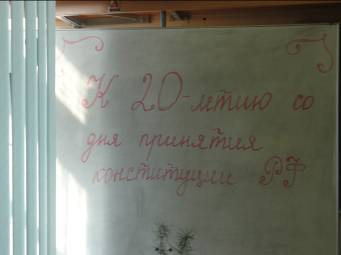 К 20-летию со
дня принятия
конституции РФ